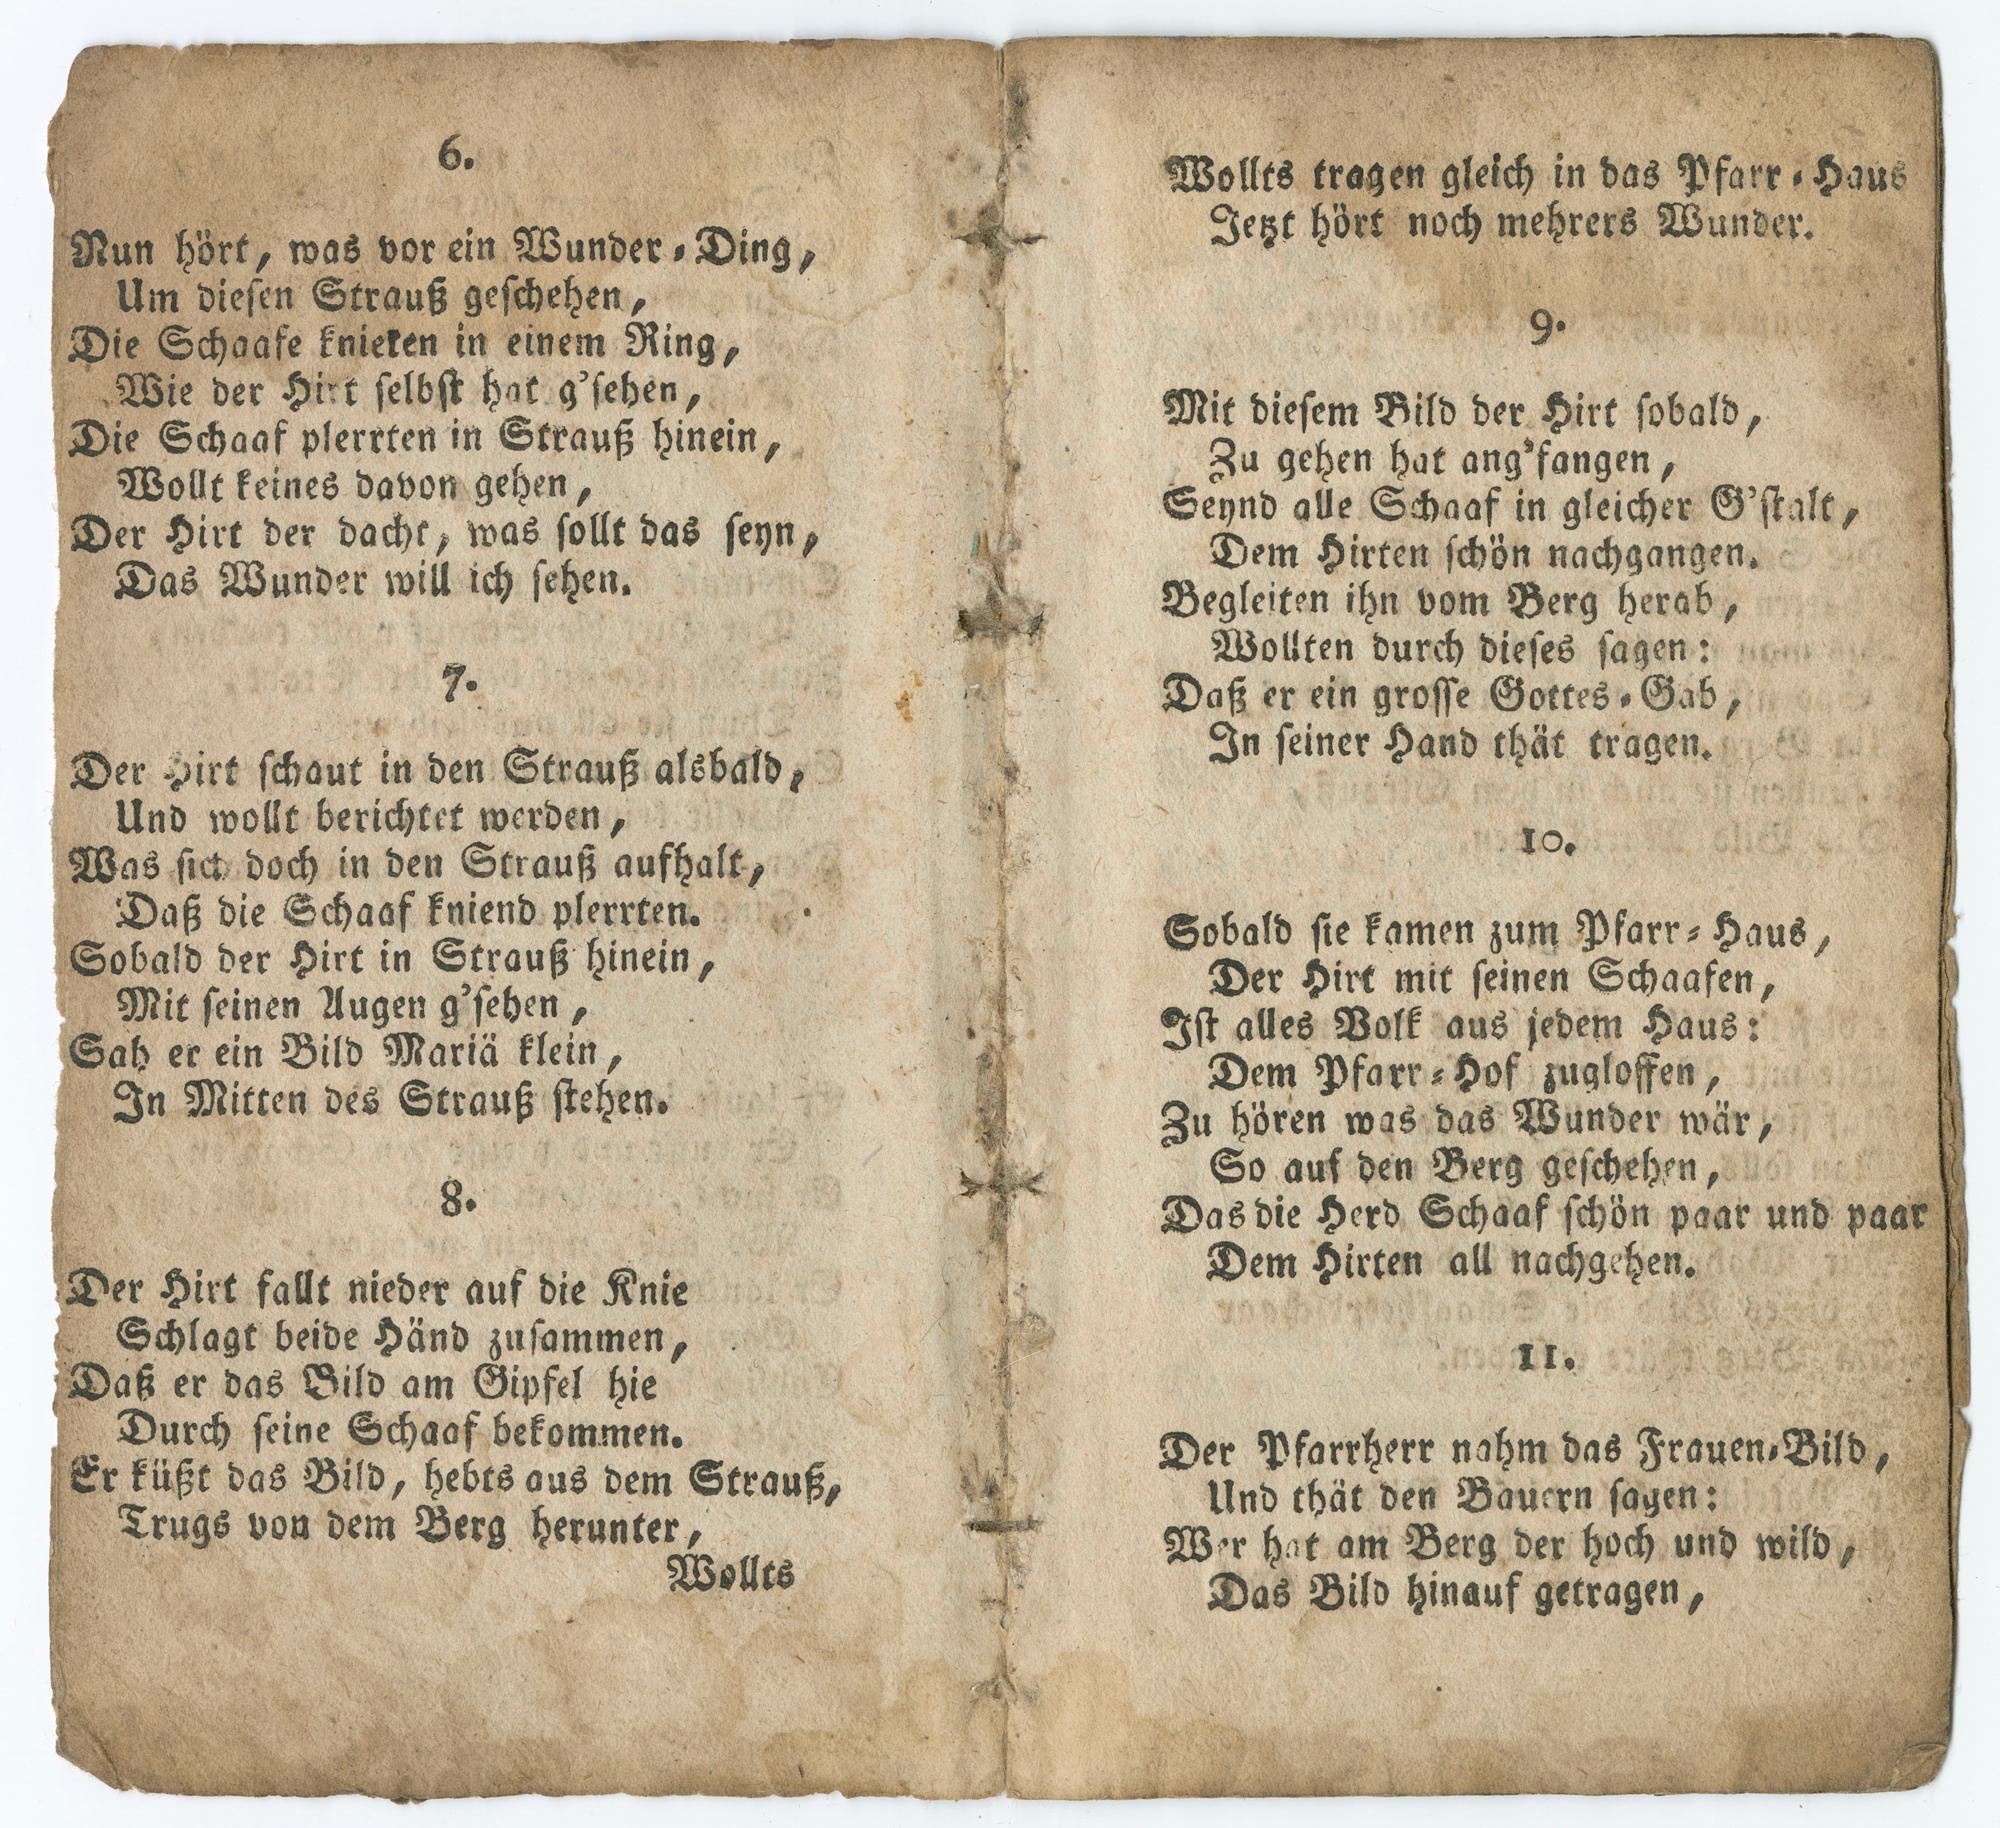 6.
Nun hört, was vor ein Wunder-Ding,
Um diesen Strauß geschehen,
Die Schaafe knieten in einem Ring,
Wie der Hirt selbst hat g'sehen,
Die Schaaf plerrten in Strauß hinein,
Wollt keines davon gehen,
Der Hirt der dacht, was sollt das seyn,
Das Wunder will ich sehen.
7.
Der Hirt schaut in den Strauß alsbald,
Und wollt berichtet werden,
Was sich doch in den Strauß aufhalt,
Daß die Schaaf kniend plerrten.
Sobald der Hirt in Strauß hinein,
Mit seinen Augen g'sehen,
Sah er ein Bild Mariä klein,
In Mitten des Strauß stehen.
8.
Der Hirt fallt nieder auf die Knie
Schlagt beide Händ zusammen,
Daß er das Bild am Gipfel hie
Durch seine Schaaf bekommen.
Er küßt das Bild, hebts aus dem Strauß,
Trugs von dem Berg herunter,
Wollts
Wollts tragen gleich in das Pfarr-Haus
Jetzt hört noch mehrers Wunder.
9.
Mit diesem Bild der Hirt sobald,
Zu gehen hat ang'fangen,
Seynd alle Schaaf in gleicher G'stalt,
Dem Hirten schön nachgangen.
Begleiten ihn vom Berg herab,
Wollten durch dieses sagen:
Daß er ein grosse Gottes-Gab,
In seiner Hand thät tragen.
10.
Sobald sie kamen zum Pfarr-Haus,
Der Hirt mit seinen Schaafen,
Ist alles Volk aus jedem Haus:
Dem Pfarr-Hof zugloffen,
Zu hören was das Wunder wär,
So auf den Berg geschehen,
Das die Herd Schaaf schön paar und paar
Dem Hirten all nachgehen.
11.
Der Pfarrherr nahm das Frauen-Bild,
Und thät den Bauern sagen:
Wer hat am Berg der hoch und wild,
Das Bild hinauf getragen,